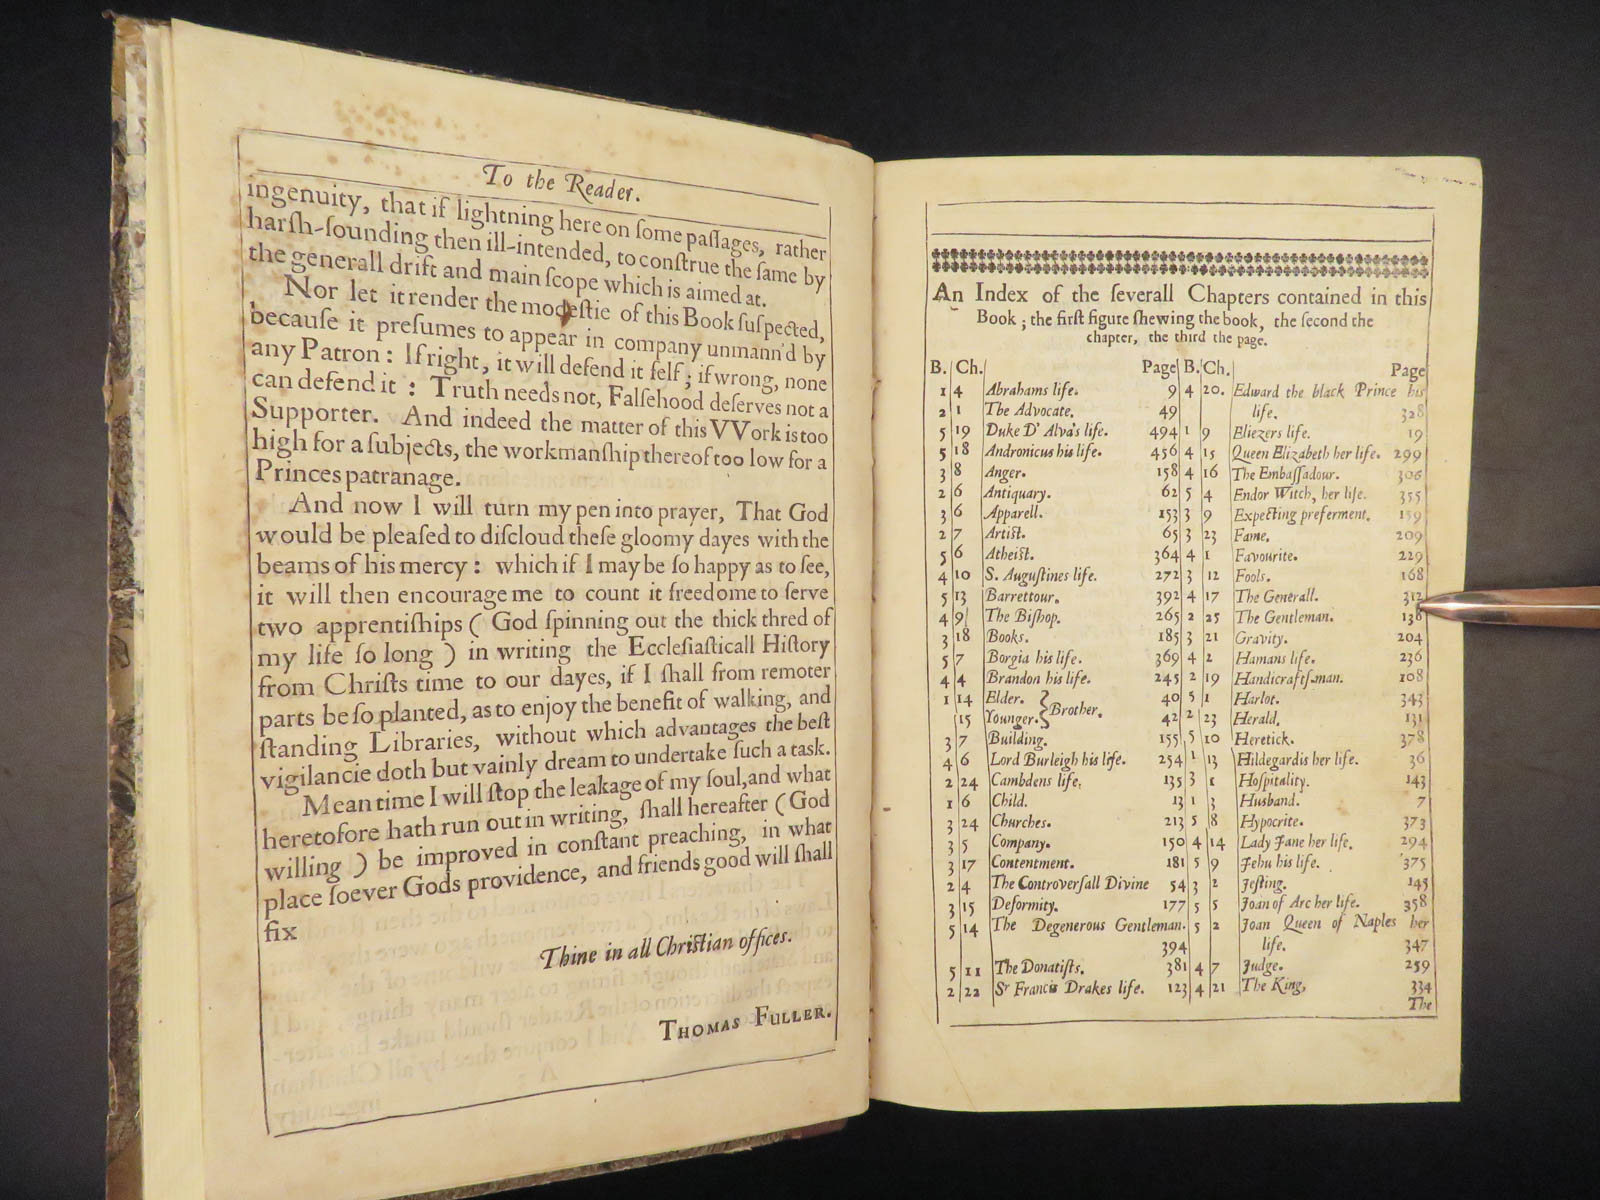 To the Reader.
ingenuity, that if lightning here on ſome paſſages, rather
harſh-ſounding then ill-intended, to conſtrue the ſame by
the generall drift and main ſcope which is aimed at.
Nor let it render the modeſtie of this Book ſuſpected,
becauſe it preſumes to appear in company unmann'd by
any Patron: If right, it will defend it ſelf; if wrong, none
can defend it: Truth needs not, Falſehood deſerves not a
Supporter. And indeed the matter of this VVork is too
high for a ſubjects, the workmanſhip thereof too low for a
Princes patranage.
And now I will turn my pen into prayer, That God
would be pleaſed to diſcloud theſe gloomy dayes with the
beams of his mercy: which if I may be ſo happy as to ſee,
it will then encourage me to count it freedome to ſerve
two apprentiſhips (God ſpinning out the thick thred of
my life ſo long) in writing the Eccleſiaſticall Hiſtory
from Chriſts time to our dayes, if I ſhall from remoter
parts be ſo planted, as to enjoy the benefit of walking, and
ſtanding Libraries, without which advantages the beſt
vigilancie doth but vainly dream to undertake ſuch a task.
Mean time I will ſtop the leakage of my ſoul, and what
heretofore hath run out in writing, ſhall hereafter (God
willing) be improved in conſtant preaching, in what
place ſoever Gods providence, and friends good will ſhall
fix
Thine in all Chriſtian offices.
THOMAS FULLER.
An Index of the ſeverall Chapters contained in this
Book; the firſt figure ſhewing the book, the ſecond the
chapter, the third the page.
B. Ch. Page
1 4 Abrahams life. 9
2 1 The Advocate. 49
5 19 Duke D' Alva's life. 494
5 18 Andronicus his life. 456
3 8 Anger. 158
2 6 Antiquary. 62
3 6 Apparell. 153
2 7 Artiſt. 65
5 6 Atheiſt. 364
4 10 S. Auguſtines life. 272
5 13 Barrettour. 392
4 9 The Biſhop. 265
3 18 Books. 185
5 7 Borgia his life. 369
4 4 Brandon his life. 245
1 14 Elder. } Brother. 40
15 Younger. 42
3 7 Building. 155
4 6 Lord Burleigh his life. 254
2 24 Cambdens life. 135
1 6 Child. 13
3 24 Churches. 213
3 5 Company. 150
3 17 Contentment. 181
2 4 The Controverſall Divine 54
3 15 Deformity. 177
5 14 The Degenerous Gentleman.
394
5 11 The Donatiſts. 381
2 22 Sr Francis Drakes life. 123
B. Ch. Page
4 20. Edward the black Prince his
life. 328
1 9 Eliezers life. 19
4 15 Queen Elizabeth her life. 299
4 16 The Embaſſadour. 306
5 4 Endor Witch, her life. 355
3 9 Expecting preferment. 159
3 23 Fame. 209
4 1 Favourite. 229
3 12 Fools. 168
4 17 The Generall. 312
2 25 The Gentleman. 138
3 21 Gravity. 204
4 2 Hamans life. 236
2 19 Handicraftſ-man. 108
5 1 Harlot. 343
2 23 Herald. 131
5 10 Heretick. 378
1 13 Hildegardis her life. 36
3 1 Hoſpitality. 143
1 3 Husband. 7
5 8 Hypocrite. 373
4 14 Lady Jane her life. 294
5 9 Jehu his life. 375
3 2 Jeſting. 145
5 5 Joan of Arc her life. 358
5 2 Joan Queen of Naples her
life. 347
4 7 Judge. 259
4 21 The King, 334
The